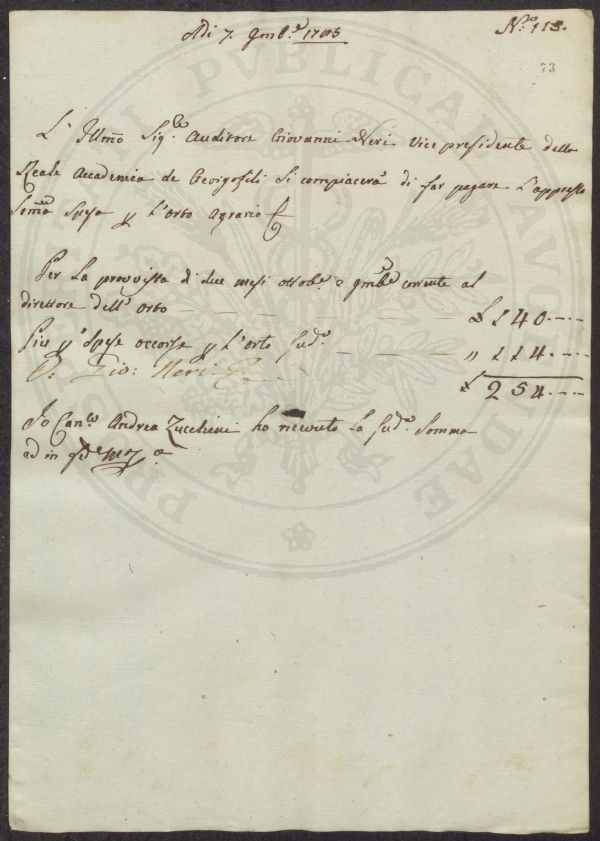 Adi 7. 9mb.e 1785
N.o 113.
73
L'Illmo Sig.re Auditore Giovanni Neri Vice presidente della
Reale Accademia de Georgofili si compiacerà di far pagare l'appresso
Somma spesa p l'Orto Agrario
Per la provvista di due mesi ottobe. e 9mbe corrente al
direttore dell'Orto — — — — £ 140.---
Piu p Spese occorse p l'Orto sud.o — — — " 114.---
Gio: Neri
£ 254.---
Io Can.co Andrea Zucchini ho ricevuto la sud.a Somma
ed in fede M.o p.a
PUBLICAE